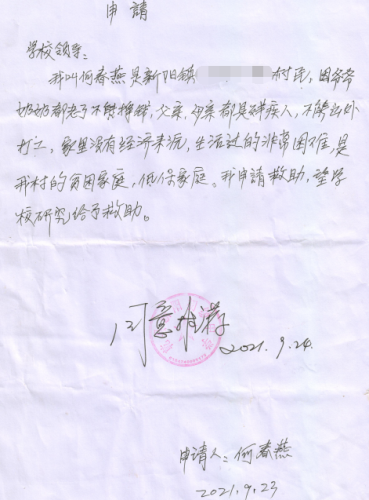 申請
学校领导:
我叫何春燕是新阳镇 村民,因爷爷
奶奶都老了不能挣钱,父亲,母亲都是残疾人,不能出外
打工,家里没有经济来沅,生活过的非常困难,是
我村的贫困家庭,低保家庭。我申請救助,望学
校研究给予救助。
同意推荐
2021.9.24.
申请人:何春燕
2021.9.23